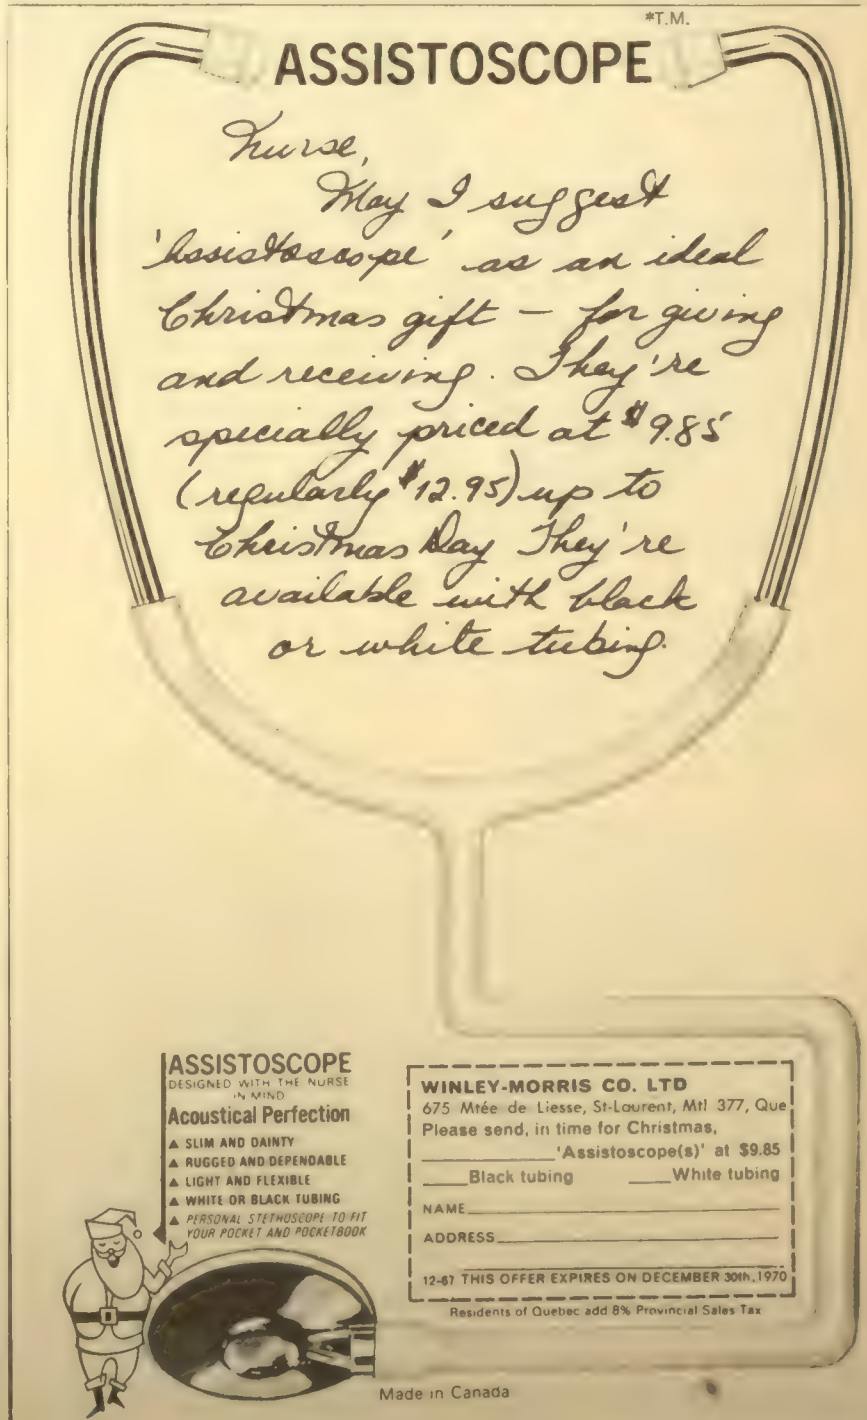 *T.M.
ASSISTOSCOPE
Nurse,
May I suggest
'Assistoscope' as an ideal
Christmas gift – for giving
and receiving. They're
specially priced at $9.85
(regularly $12.95) up to
Christmas Day They're
available with black
or white tubing.
ASSISTOSCOPE
DESIGNED WITH THE NURSE
IN MIND
Acoustical Perfection
▲ SLIM AND DAINTY
▲ RUGGED AND DEPENDABLE
▲ LIGHT AND FLEXIBLE
▲ WHITE OR BLACK TUBING
▲ PERSONAL STETHOSCOPE TO FIT
YOUR POCKET AND POCKETBOOK
WINLEY-MORRIS CO. LTD
675 Mtée de Liesse, St-Laurent, Mtl 377, Que
Please send, in time for Christmas,
_____________'Assistoscope(s)' at $9.85
____Black tubing ____White tubing
NAME____________________
ADDRESS____________________
12-67 THIS OFFER EXPIRES ON DECEMBER 30th, 1970
Residents of Quebec add 8% Provincial Sales Tax
Made in Canada